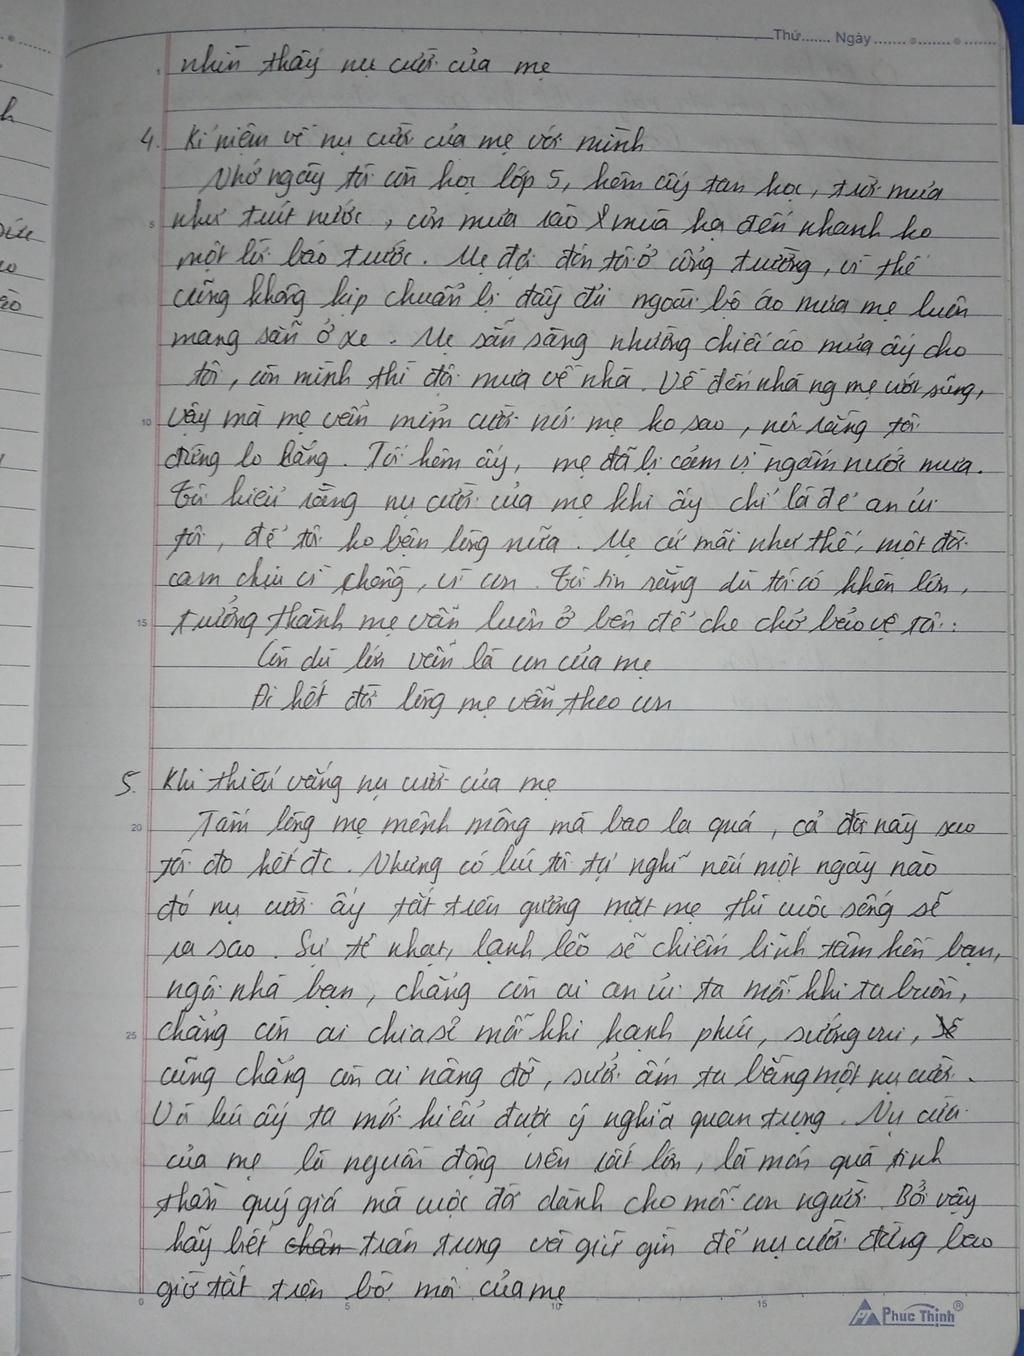 Thứ....... Ngày.......
nhìn thấy nụ cười của mẹ
4. Kỉ niệm về nụ cười của mẹ với mình
Nhớ ngày tôi còn học lớp 5, hôm ấy tan học, trời mưa
như trút nước, cơn mưa rào mùa hạ đến nhanh ko
một lời báo trước. Mẹ đợi đón tôi ở cổng trường, vì thế
cũng không kịp chuẩn bị đầy đủ ngoài bộ áo mưa mẹ luôn
mang sẵn ở xe. Mẹ sẵn sàng nhường chiếc áo mưa ấy cho
tôi, còn mình thì đội mưa về nhà. Về đến nhà ng mẹ ướt sũng,
vậy mà mẹ vẫn mỉm cười nói mẹ ko sao, nói rằng tôi
đừng lo lắng. Tối hôm ấy, mẹ đã bị cảm vì ngấm nước mưa.
Tôi hiểu rằng nụ cười của mẹ khi ấy chỉ là để an ủi
tôi, để tôi ko bận lòng nữa. Mẹ cứ mãi như thế, một đời
cam chịu vì chồng, vì con. Tôi tin rằng dù tôi có khôn lớn,
trưởng thành mẹ vẫn luôn ở bên để che chở bảo vệ tôi:
Con dù lớn vẫn là con của mẹ
Đi hết đời lòng mẹ vẫn theo con
5. Khi thiếu vắng nụ cười của mẹ
Tấm lòng mẹ mênh mông mà bao la quá, cả đời này sao
tôi đo hết đc. Nhưng có lúc tôi tự nghĩ nếu một ngày nào
đó nụ cười ấy tắt trên gương mặt mẹ thì cuộc sống sẽ
ra sao. Sự tẻ nhạt, lạnh lẽo sẽ chiếm lĩnh tâm hồn bạn,
ngôi nhà bạn, chẳng còn ai an ủi ta mỗi khi ta buồn,
chẳng còn ai chia sẻ mỗi khi hạnh phúc, sướng vui,
cũng chẳng còn ai nâng đỡ, sưởi ấm ta bằng một nụ cười.
Và lúc ấy ta mới hiểu được ý nghĩa quan trọng. Nụ cười
của mẹ là nguồn động viên rất lớn, là món quà tinh
thần quý giá mà cuộc đời dành cho mỗi con người. Bởi vậy
hãy biết chân trân trọng và giữ gìn để nụ cười đừng bao
giờ tắt trên bờ môi của mẹ
0 5 10 15
Phuc Thinh®